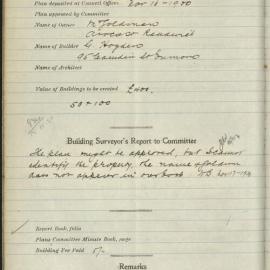 Plan deposited at Council Offices Nov 10 - 1900
Plan approved by Committee
Name of Owner
Name of Builder G. Hoggers
Name of Architect
Value of Buildings to be erected £400.
50 × 100
Building Surveyor's Report to Committee
The plan might be approved, but I cannot
identify the property, the name of
does not appear in our book
Report Book, folio
Plans Committee Minute Book, page
Building Fee Paid 5/-
Remarks